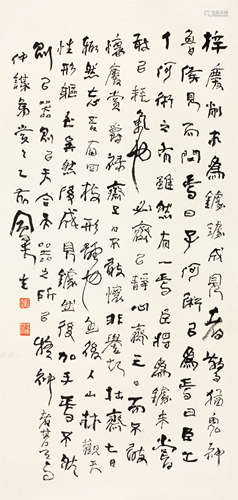 梓慶削木為鐻鐻成見者驚猶鬼神
魯侯見而問焉曰子何術以為焉曰臣工
人何術之有雖然有一焉臣將為鐻未嘗
敢以耗氣也必齋以靜心齋三日而不敢
懷慶賞爵祿齋五日不敢懷非譽巧拙齋七日
輒然忘吾四枝形體也然後入山林觀天
性形軀至矣然後成見鐻然後加手焉不然
則已以天合天器之所以疑神
仲謀弟賞之